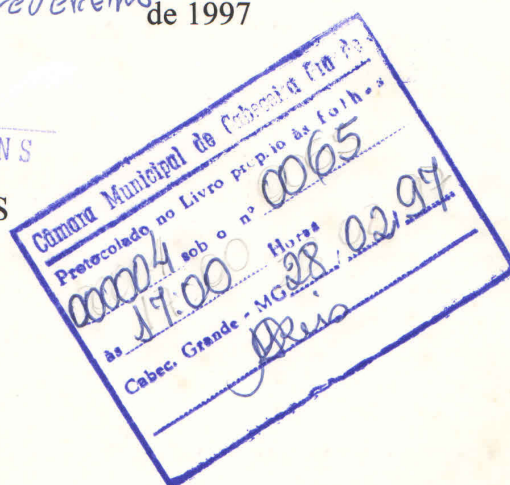 FEVEREIRO de 1997
NS
S
Câmara Municipal de Cabeceira Gra de
Protocolado no Livro próprio às folhas
000004 sob o nº 0065
às 17:00 Horas
Cabec. Grande - MG 28/02/97
Reis